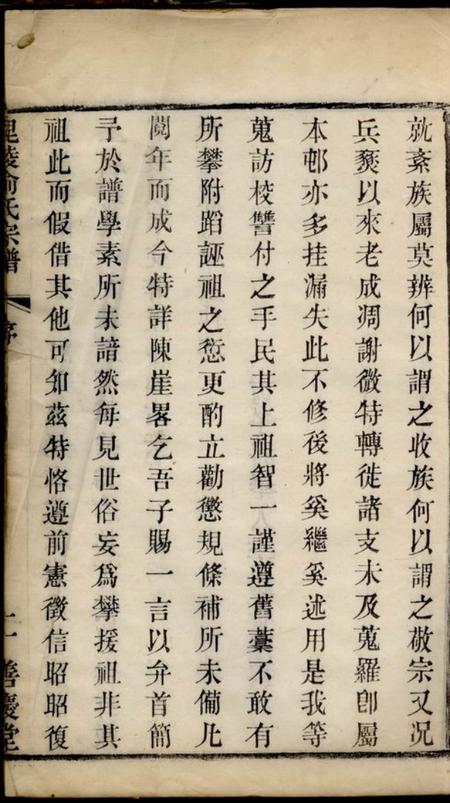 就紊族屬莫辨何以謂之收族何以謂之敬宗又况
兵燹以來老成凋謝微特轉徙諸支未及蒐羅卽屬
本邨亦多挂漏失此不修後將奚繼奚述用是我等
蒐訪校讐付之手民其上祖智一謹遵舊藁不敢有
所攀附蹈誣祖之愆更酌立勸懲規條補所未僃凡
閱年而成今特詳陳崖畧乞吾子賜一言以弁首簡
予於譜學素所未諳然每見世俗妄爲攀援祖非其
祖此而假借其他可知茲特恪遵前憲徵信昭昭復
俞氏宗譜
序
二
善慶堂